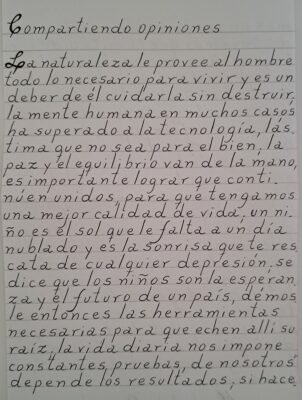 Compartiendo opiniones
La naturaleza le provee al hombre
todo lo necesario para vivir y es un
deber de él cuidarla sin destruir,
la mente humana en muchos casos
ha superado a la tecnología, lás-
tima que no sea para el bien, la
paz y el equilibrio van de la mano,
es importante lograr que conti-
núen unidos, para que tengamos
una mejor calidad de vida, un ni-
ño es el sol que le falta a un día
nublado y es la sonrisa que te res-
cata de cualquier depresión, se
dice que los niños son la esperan-
za y el futuro de un país, démos
le entonces las herramientas
necesarias para que echen allí su
raíz, la vida diaria nos impone
constantes pruebas, de nosotros
depende los resultados, si hace